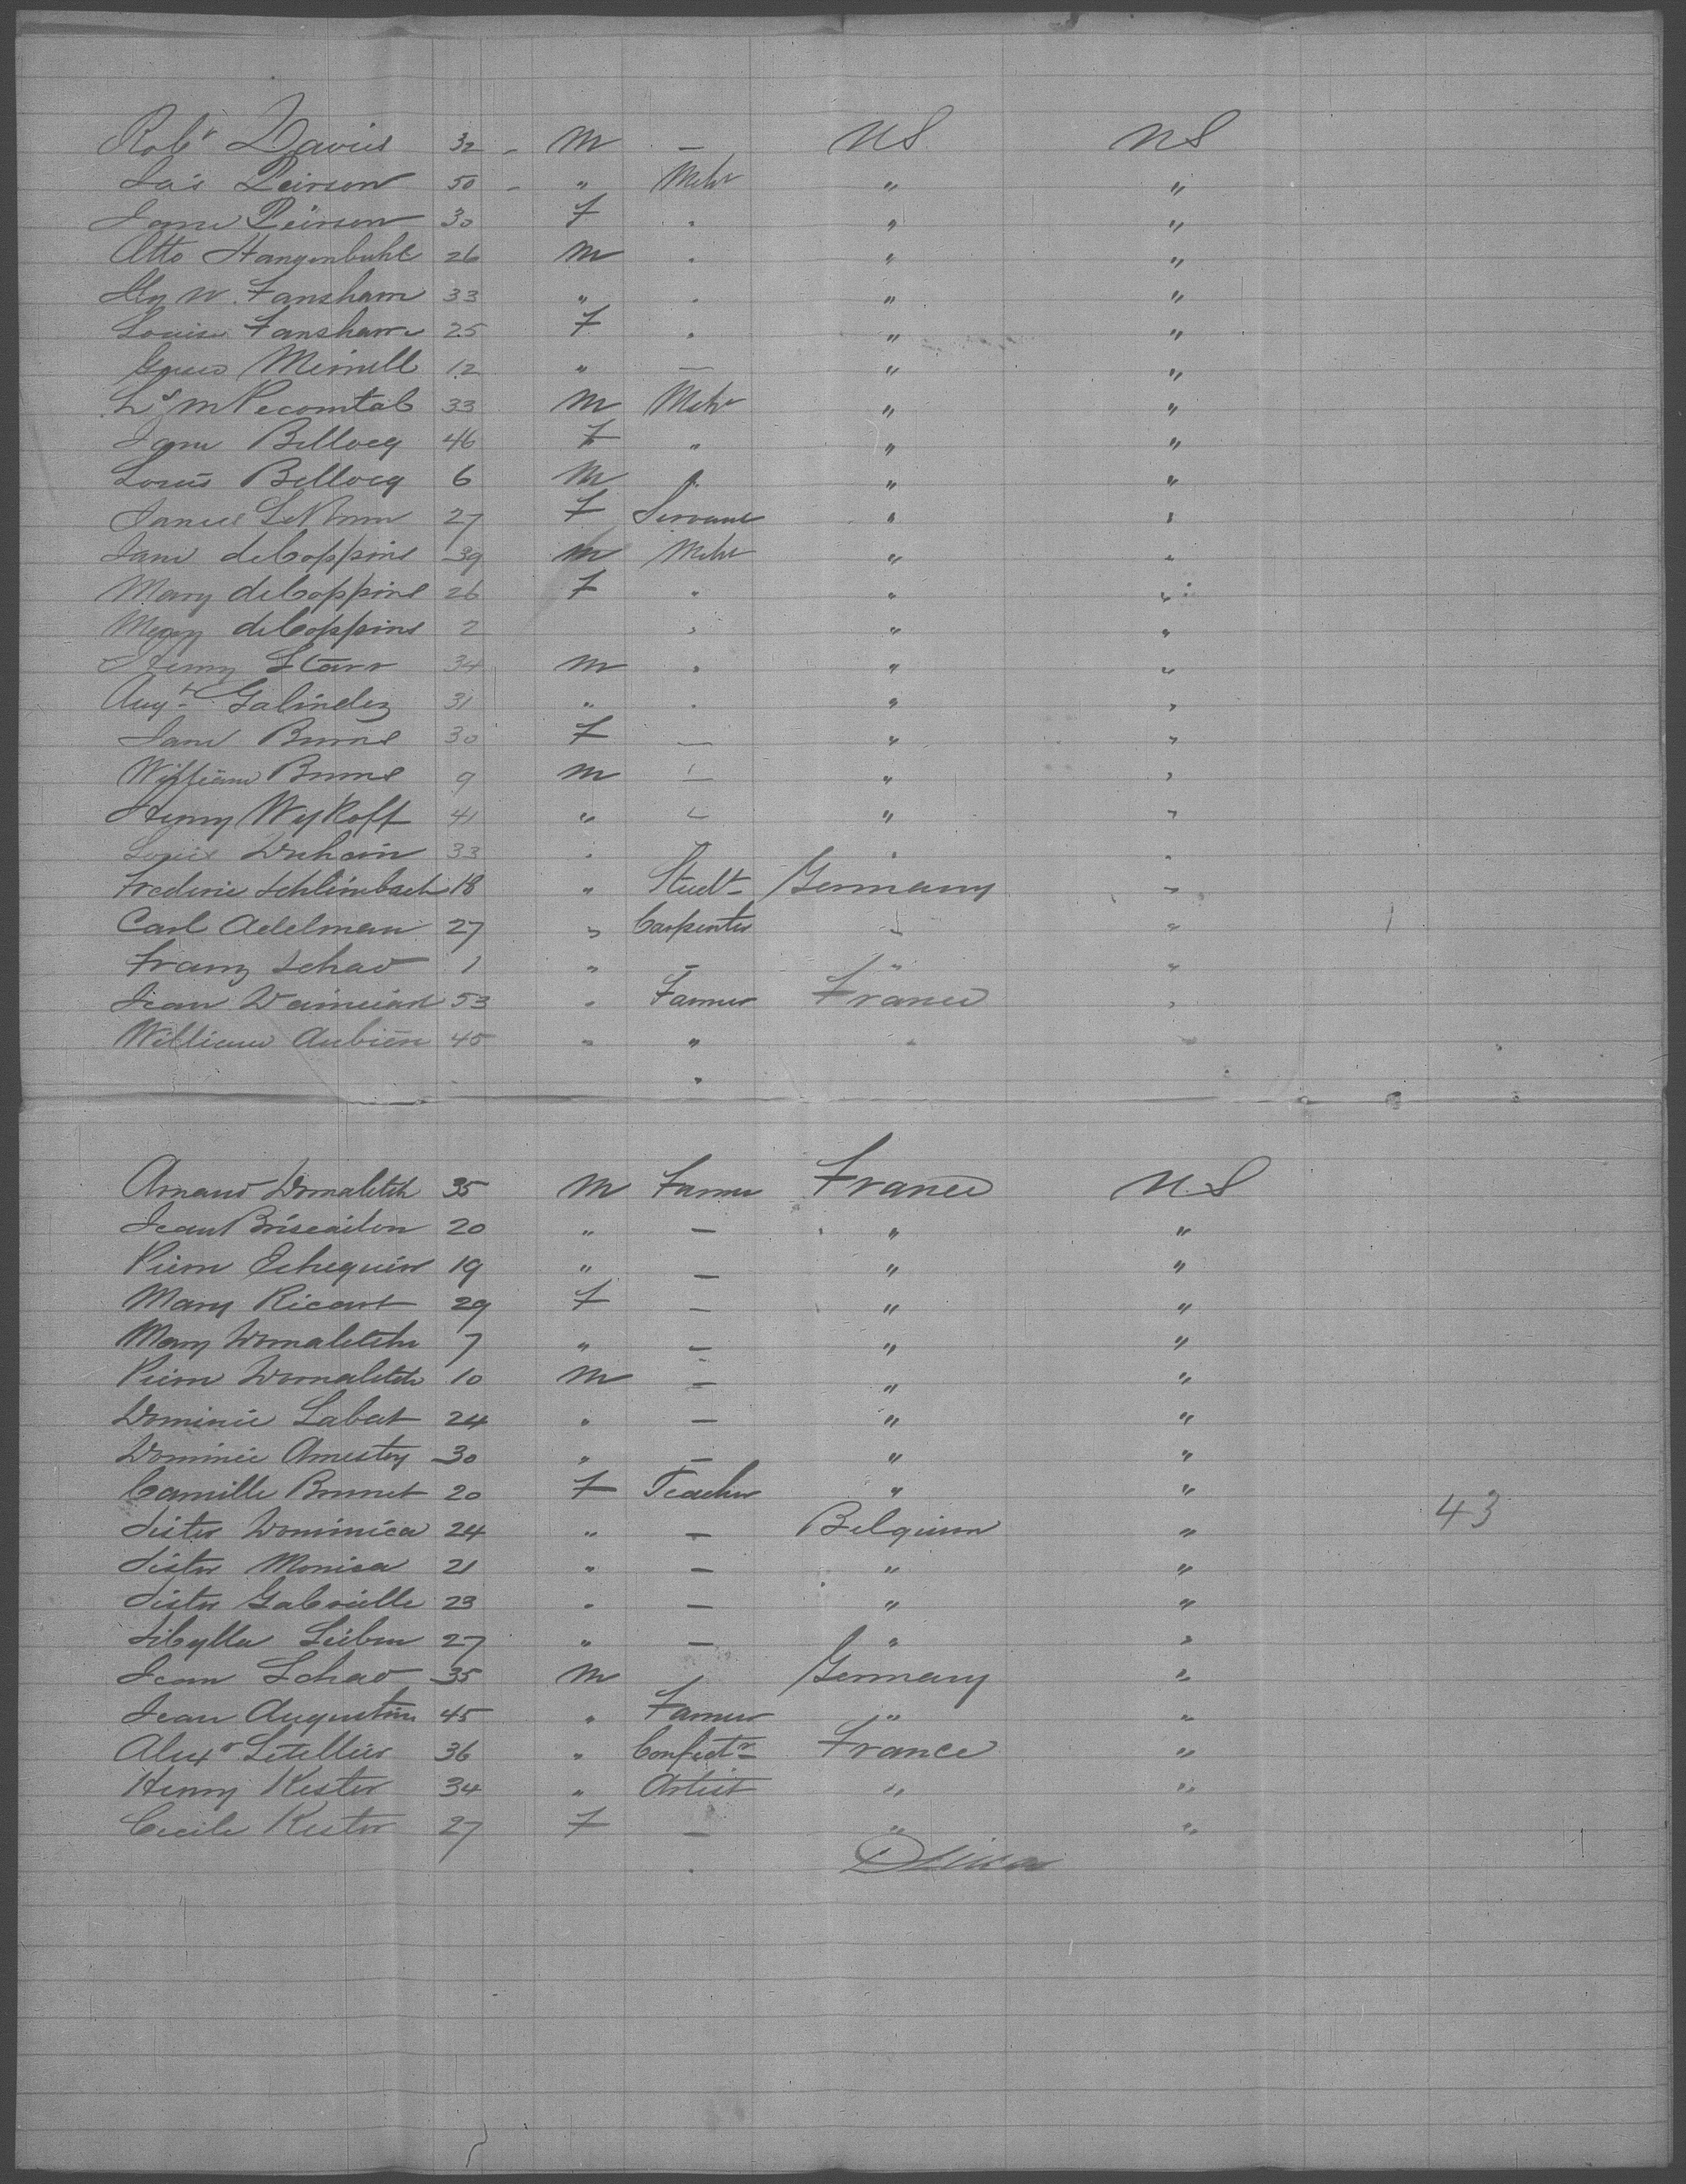 Robt Davies 32 - M — US US
Jas Peirson 50 - " Mcht " "
Jane Peirson 30 F " " "
Otto Hangenbuhl 26 M " " "
Hy W. Fansham 33 " " " "
Louise Fansham 25 F " " "
Grace Merrill 12 " — " "
Ls M Pecomtal 33 M Mcht " "
Jane Bellocq 46 F " " "
Louis Bellocq 6 M " " "
27 F Servant " "
Jane deCoppins 39 M Mcht " "
Mary deCoppins 26 F " " "
Mary deCoppins 2 " " "
Henry Starr 34 M " " "
Augt Galindez 31 " " " "
Jane Burns 30 F — " "
William Burns 9 M — " "
Henry Wykoff 41 " — " "
Louis 33 " " " "
Frederic Schlimbach 18 " Studt Germany "
Carl Adelman 27 " Carpenter " " 1
Franz Schad 1 " — " "
Jean 53 " Farmer France "
William Aubien 45 " " " "
"
Arnaud Domaletch 35 M Farmer France U.S
Jean Briscaiton 20 " — " "
Pierre 19 " — " "
Mary Ricart 29 F — " "
Mary Domaletche 7 " — " "
Pierre Domaletch 10 M — " "
Dominic Labat 24 " — " "
Dominic Amestoy 30 " — " "
Camille Brunet 20 F Teacher " "
Sister Dominica 24 " — Belgium " 43
Sister Monica 21 " — " "
Sister Gabrielle 23 " — " "
Sibylla 27 " — " "
Jean Schad 35 M Germany "
Jean Augustin 45 " Farmer " "
Alexr Letellier 36 " Confectr France "
Henry Kester 34 " Artist " "
Cecile Kester 27 F — " "